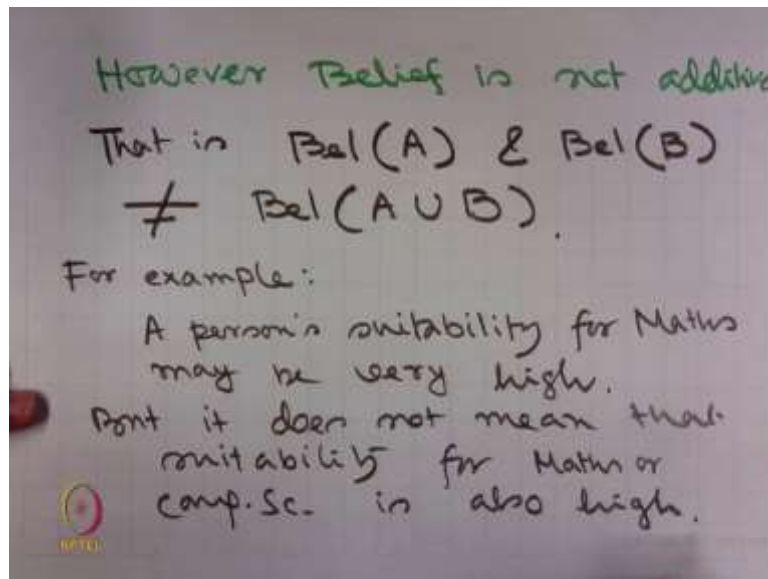 However Belief is not additive
That is Bel(A) & Bel(B)
≠ Bel(A ∪ B).
For example:
A person's suitability for Maths
may be very high.
But it does not mean that
suitability for Maths or
comp. Sc. is also high.
NPTEL